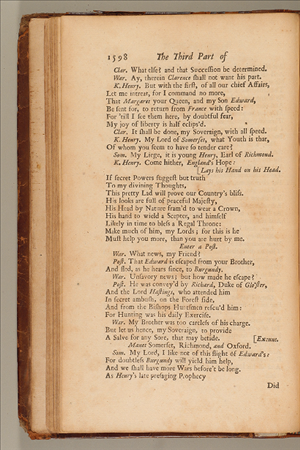 1598 The Third Part of
Clar. What else? and that Succession be determined.
War. Ay, therein Clarence shall not want his part.
K. Henry. But with the first, of all our chief Affairs,
Let me intreat, for I command no more,
That Margaret your Queen, and my Son Edward,
Be sent for, to return from France with speed:
For 'till I see them here, by doubtful fear,
My joy of liberty is half eclips'd.
Clar. It shall be done, my Sovereign, with all speed.
K. Henry. My Lord of Somerset, what Youth is that,
Of whom you seem to have so tender care?
Som. My Liege, it is young Henry, Earl of Richmond.
K. Henry. Come hither, England's Hope:
[Lays his Hand on his Head,
If secret Powers suggest but truth
To my divining Thoughts,
This pretty Lad will prove our Country's bliss.
His looks are full of peaceful Majesty,
His Head by Nature fram'd to wear a Crown,
His hand to wield a Scepter, and himself
Likely in time to bless a Regal Throne:
Make much of him, my Lords; for this is he
Must help you more, than you are hurt by me.
Enter a Post.
War. What news, my Friend?
Post. That Edward is escaped from your Brother,
And fled, as he hears since, to Burgundy.
War. Unsavory news; but how made he escape?
Post. He was convey'd by Richard, Duke of Gloster,
And the Lord Hastings, who attended him
In secret ambush, on the Forest side,
And from the Bishops Huntsmen rescu'd him:
For Hunting was his daily Exercise.
War. My Brother was too careless of his charge.
But let us hence, my Soveraign, to provide
A Salve for any Sore, that may betide. [Exeunt.
Manet Somerset, Richmond, and Oxford.
Som. My Lord, I like not of this flight of Edward's:
For doubtless Burgundy will yield him help,
And we shall have more Wars before't be long.
As Henry's late presaging Prophecy
Did